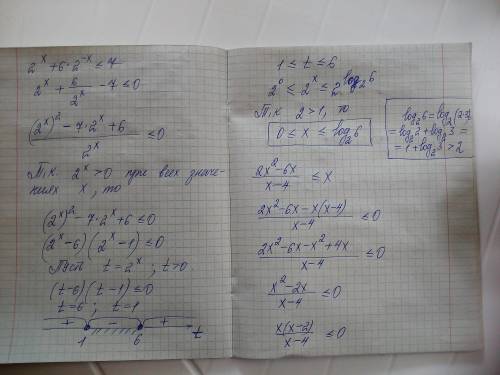 2^x + 6·2^-x ≤ 7
2^x + 6/2^x - 7 ≤ 0
((2^x)^2 - 7·2^x + 6)/2^x ≤ 0
Т.к. 2^x > 0 при всех значе-
ниях x, то
(2^x)^2 - 7·2^x + 6 ≤ 0
(2^x - 6)(2^x - 1) ≤ 0
Пусть t = 2^x; t > 0
(t-6)(t-1) ≤ 0
t = 6; t = 1
+ - + t
1 6
1 ≤ t ≤ 6
2^0 ≤ 2^x ≤ 2^log_2 6
Т.к. 2 > 1, то
0 ≤ x ≤ log_2 6
log_2 6 = log_2 (2·3) =
= log_2 2 + log_2 3 =
= 1 + log_2 3 > 2
(2x^2 - 6x)/(x-4) ≤ x
(2x^2 - 6x - x(x-4))/(x-4) ≤ 0
(2x^2 - 6x - x^2 + 4x)/(x-4) ≤ 0
(x^2 - 2x)/(x-4) ≤ 0
x(x-2)/(x-4) ≤ 0